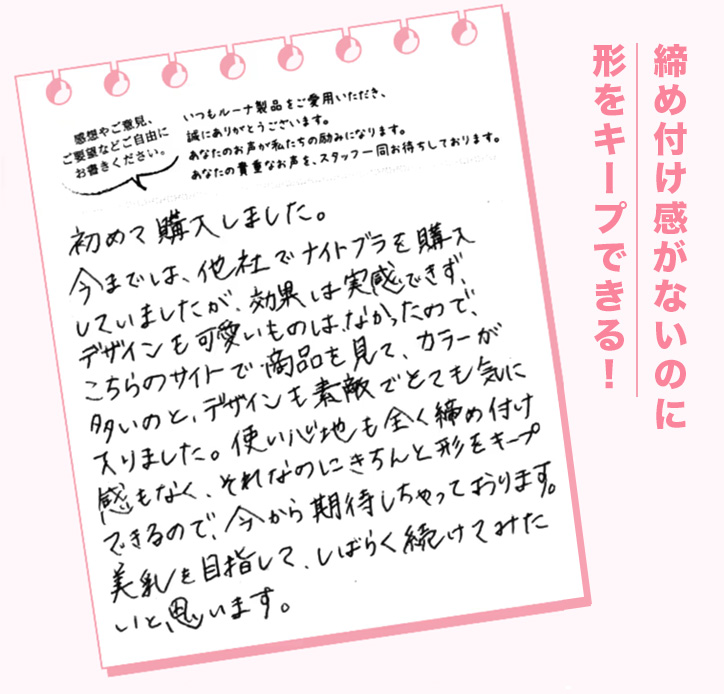 締め付け感がないのに
形をキープできる！
感想やご意見、
ご要望などご自由に
お書きください。
いつもルーナ製品をご愛用いただき、
誠にありがとうございます。
あなたのお声が私たちの励みになります。
あなたの貴重なお声を、スタッフ一同お待ちしております。
初めて購入しました。
今までは、他社でナイトブラを購入
していましたが、効果は実感できず、
デザインも可愛いものは、なかったので、
こちらのサイトで商品を見て、カラーが
多いのと、デザインも素敵でとても気に
入りました。使い心地も全く締め付け
感もなく、それなのにきちんと形をキープ
できるので、今から期待しちゃっております。
美乳を目指して、しばらく続けてみた
いと思います。